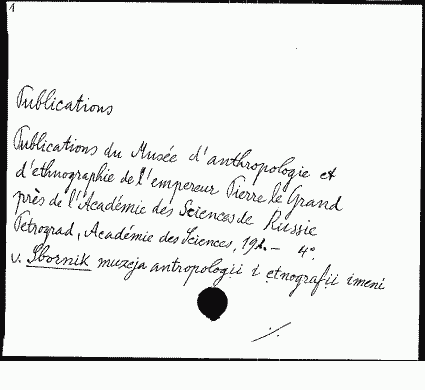 1
Publications
Publications du Musée d'anthropologie et
d'ethnographie de l'empereur Pierre le Grand
près de l'Académie des Sciences de Russie
Petrograd, Académie des Sciences, 19 — 4°.
v. Sbornik muzeja antropologii i etnografii imeni
./.